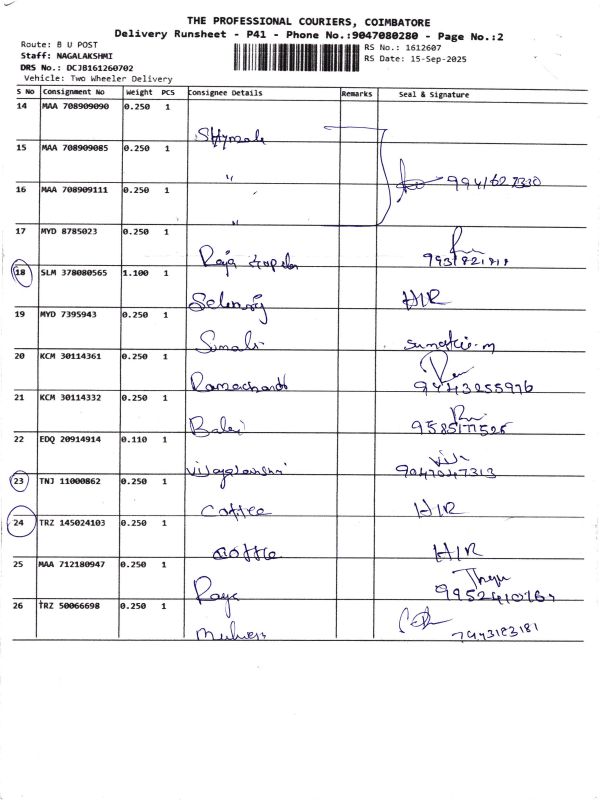 THE PROFESSIONAL COURIERS, COIMBATORE
Delivery Runsheet - P41 - Phone No.:9047080280 - Page No.:2
Route: B U POST
RS No.: 1612607
Staff: NAGALAKSHMI
RS Date: 15-Sep-2025
DRS No.: DCJB161260702
Vehicle: Two Wheeler Delivery
S No Consignment No Weight PCS Consignee Details Remarks Seal & Signature
14 MAA 708909090 0.250 1
15 MAA 708909085 0.250 1
16 MAA 708909111 0.250 1
17 MYD 8785023 0.250 1 Raja
18 SLM 378080565 1.100 1 H/R
19 MYD 7395943 0.250 1
20 KCM 30114361 0.250 1 9443255976
21 KCM 30114332 0.250 1 Balaji 9585177525
22 EDQ 20914914 0.110 1 9047047313
23 TNJ 11000862 0.250 1 Coffee H/R
24 TRZ 145024103 0.250 1 Coffee H/R
25 MAA 712180947 0.250 1
26 TRZ 50066698 0.250 1